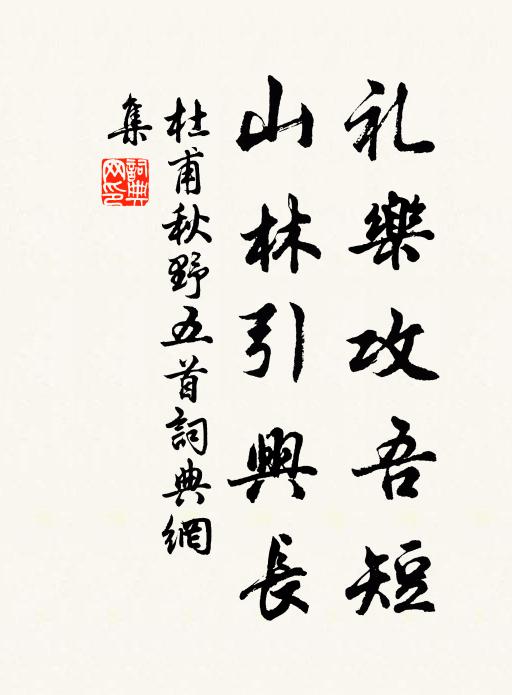 礼樂攻吾短
山林引興長
杜甫秋野五首詞典網
集
詞典网印